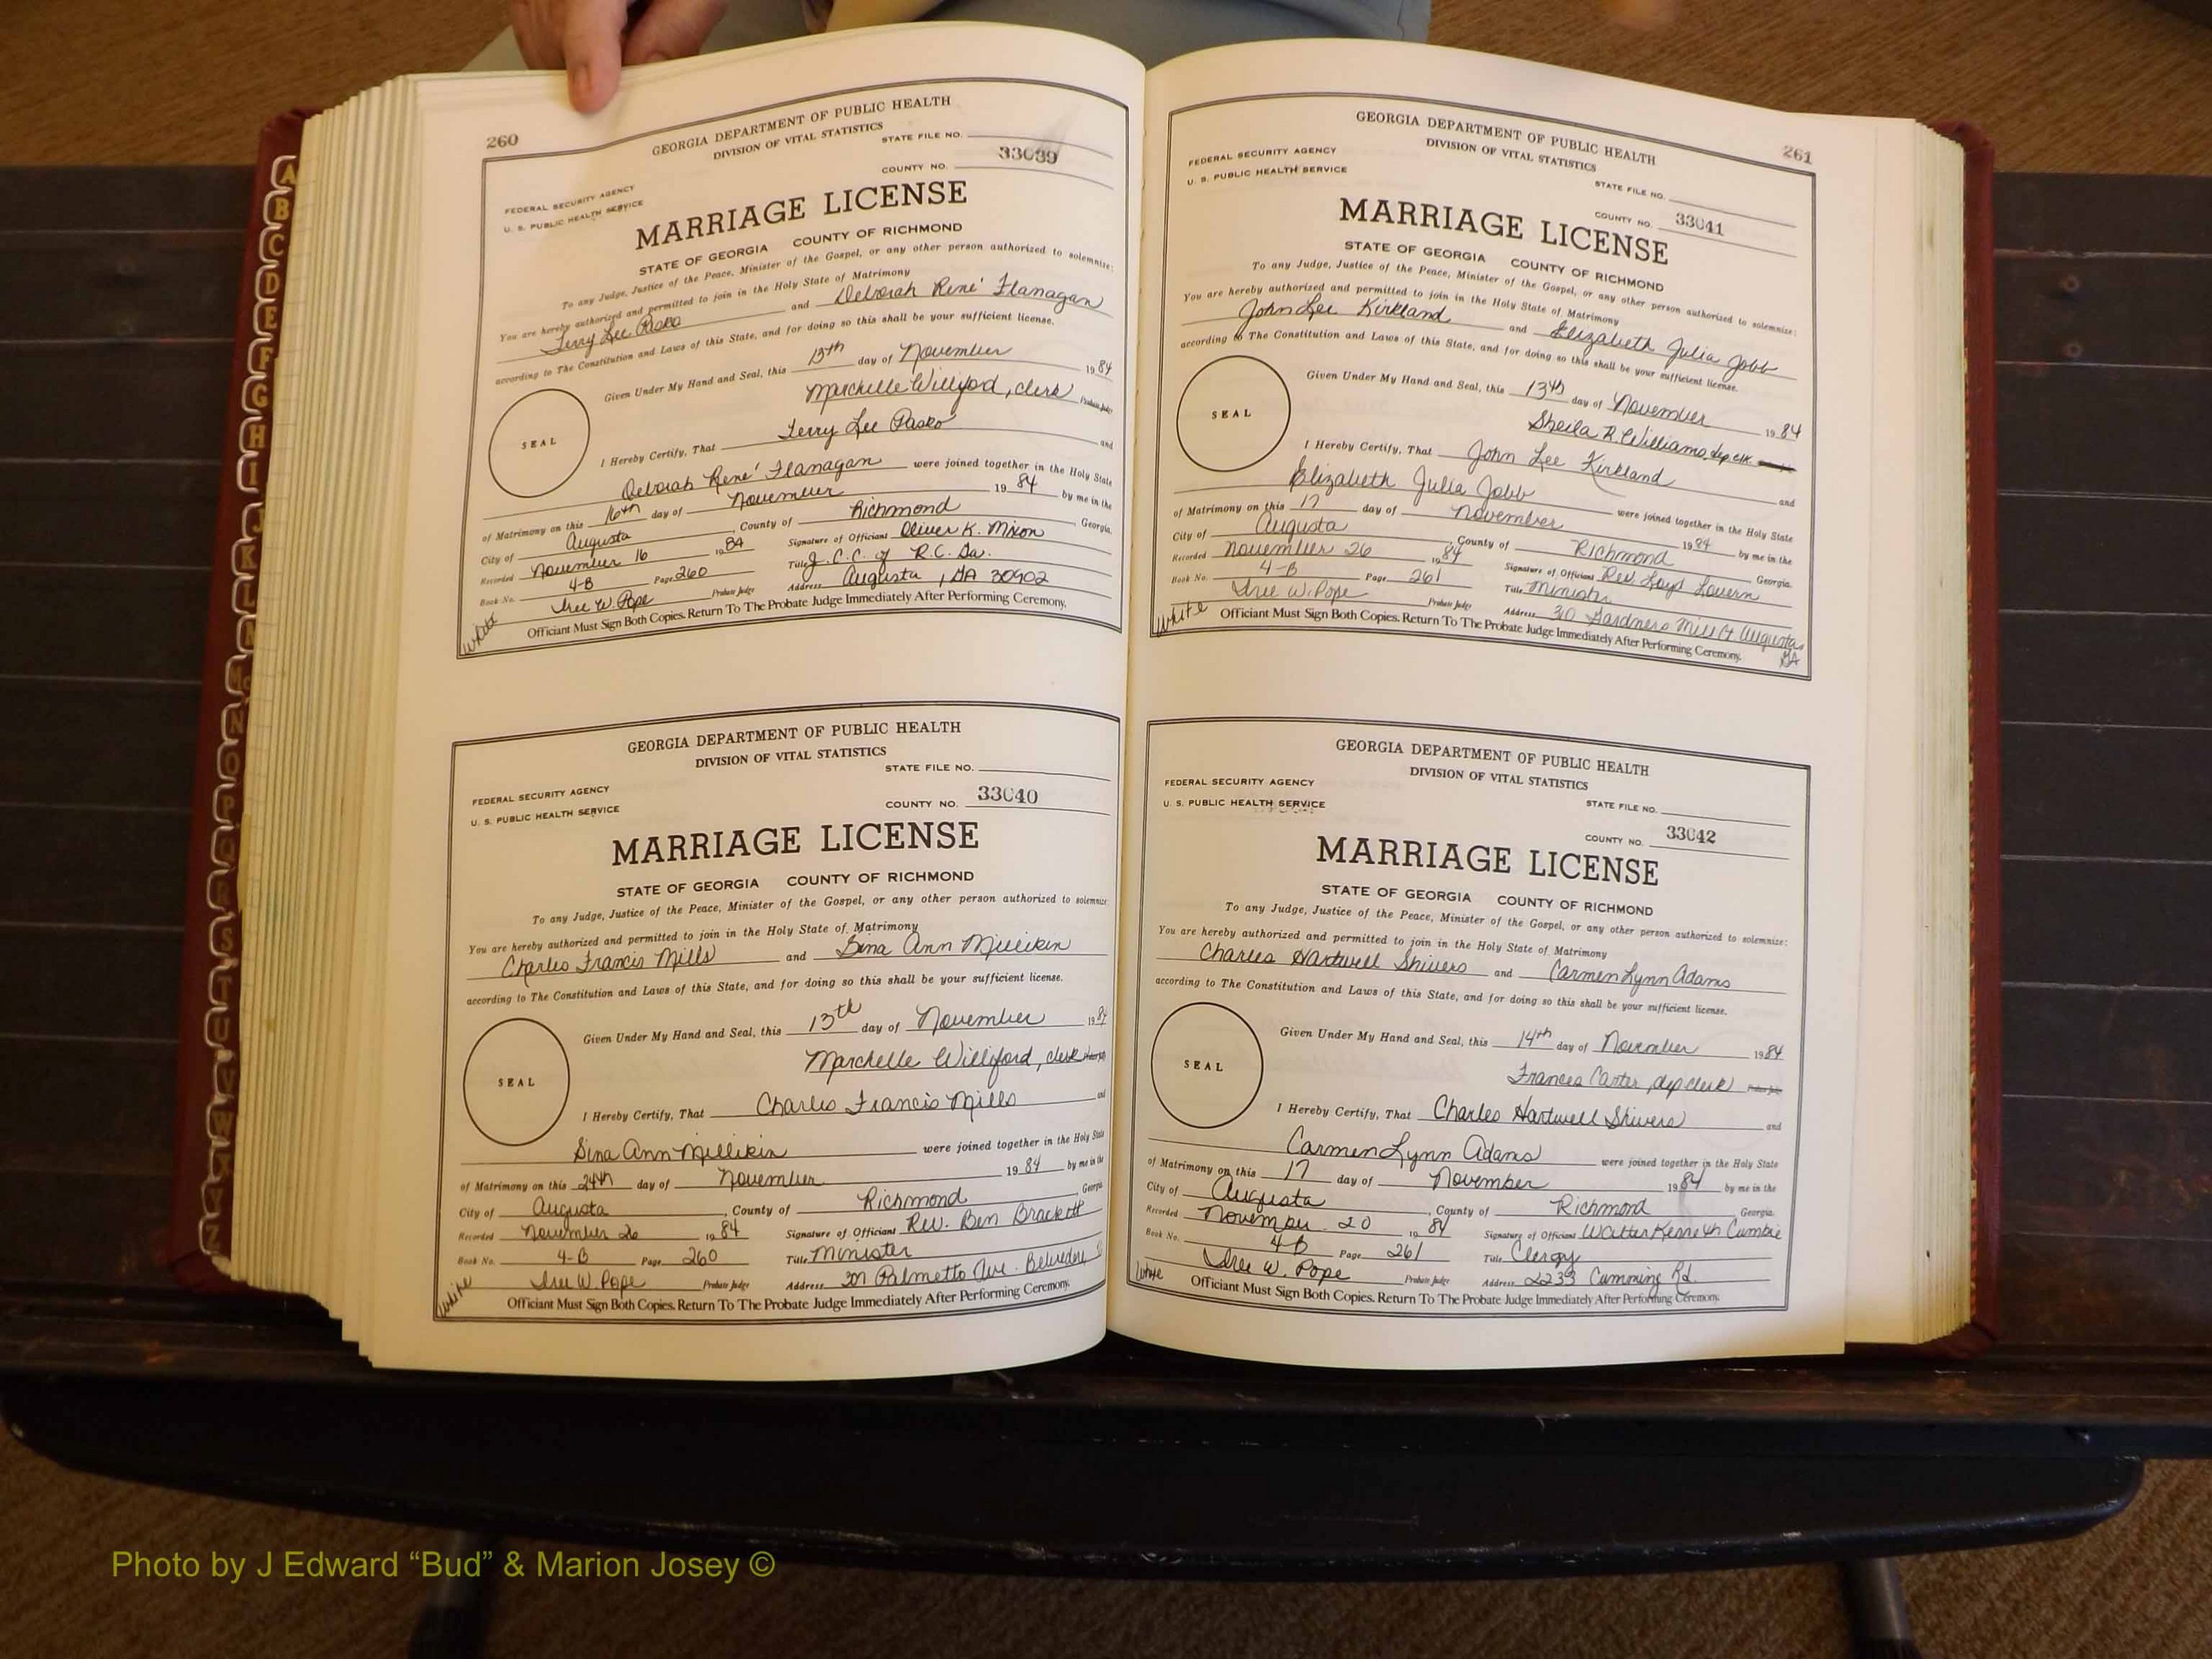 260
GEORGIA DEPARTMENT OF PUBLIC HEALTH
DIVISION OF VITAL STATISTICS
STATE FILE NO.
COUNTY NO. 33039
FEDERAL SECURITY AGENCY
U. S. PUBLIC HEALTH SERVICE
MARRIAGE LICENSE
STATE OF GEORGIA COUNTY OF RICHMOND
To any Judge, Justice of the Peace, Minister of the Gospel, or any other person authorized to solemnize:
You are hereby authorized and permitted to join in the Holy State of Matrimony
Terry Lee Pasko and Deborah René Flanagan
according to The Constitution and Laws of this State, and for doing so this shall be your sufficient license.
Given Under My Hand and Seal, this 13th day of November 1984
Marchelle Williford, clerk Probate Judge
SEAL
I Hereby Certify, That Terry Lee Pasko and
Deborah René Flanagan were joined together in the Holy State
of Matrimony on this 16th day of November 1984 by me in the
City of Augusta, County of Richmond, Georgia.
Recorded November 16 1984 Signature of Officiant Oliver K. Mixon
Book No. 4-B Page 260 Title J.C.C. of R.C. Ga.
Iree W. Pope Probate Judge Address Augusta, GA 30902
White
Officiant Must Sign Both Copies. Return To The Probate Judge Immediately After Performing Ceremony.
GEORGIA DEPARTMENT OF PUBLIC HEALTH
DIVISION OF VITAL STATISTICS
STATE FILE NO.
FEDERAL SECURITY AGENCY
U. S. PUBLIC HEALTH SERVICE
COUNTY NO. 33040
MARRIAGE LICENSE
STATE OF GEORGIA COUNTY OF RICHMOND
To any Judge, Justice of the Peace, Minister of the Gospel, or any other person authorized to solemnize:
You are hereby authorized and permitted to join in the Holy State of Matrimony
Charles Francis Mills and Gina Ann Millikin
according to The Constitution and Laws of this State, and for doing so this shall be your sufficient license.
Given Under My Hand and Seal, this 13th day of November 1984
Marchelle Williford, clerk
SEAL
I Hereby Certify, That Charles Francis Mills and
Gina Ann Millikin were joined together in the Holy State
of Matrimony on this 24th day of November 1984 by me in the
City of Augusta, County of Richmond, Georgia
Recorded November 26 1984 Signature of Officiant Rev. Ben Brackett
Book No. 4-B Page 260 Title Minister
Iree W. Pope Probate Judge Address 201 Palmetto Ave. Belvedere
White
Officiant Must Sign Both Copies. Return To The Probate Judge Immediately After Performing Ceremony.
261
GEORGIA DEPARTMENT OF PUBLIC HEALTH
DIVISION OF VITAL STATISTICS
FEDERAL SECURITY AGENCY
U. S. PUBLIC HEALTH SERVICE
STATE FILE NO.
COUNTY NO. 33041
MARRIAGE LICENSE
STATE OF GEORGIA COUNTY OF RICHMOND
To any Judge, Justice of the Peace, Minister of the Gospel, or any other person authorized to solemnize:
You are hereby authorized and permitted to join in the Holy State of Matrimony
John Lee Kirkland and Elizabeth Julia Jobb
according to The Constitution and Laws of this State, and for doing so this shall be your sufficient license.
Given Under My Hand and Seal, this 13th day of November 1984
Sheila R. Williams, dep clk
SEAL
I Hereby Certify, That John Lee Kirkland and
Elizabeth Julia Jobb were joined together in the Holy State
of Matrimony on this 17 day of November 1984 by me in the
City of Augusta, County of Richmond Georgia.
Recorded November 26 1984 Signature of Officiant Rev. Loyd
Book No. 4-B Page 261 Title Minister
Iree W. Pope Probate Judge Address 30 Gardners Mill Ct Augusta, GA
White
Officiant Must Sign Both Copies. Return To The Probate Judge Immediately After Performing Ceremony.
GEORGIA DEPARTMENT OF PUBLIC HEALTH
DIVISION OF VITAL STATISTICS
FEDERAL SECURITY AGENCY
U. S. PUBLIC HEALTH SERVICE
STATE FILE NO.
COUNTY NO. 33042
MARRIAGE LICENSE
STATE OF GEORGIA COUNTY OF RICHMOND
To any Judge, Justice of the Peace, Minister of the Gospel, or any other person authorized to solemnize:
You are hereby authorized and permitted to join in the Holy State of Matrimony
Charles Hartwell Shivers and Carmen Lynn Adams
according to The Constitution and Laws of this State, and for doing so this shall be your sufficient license.
Given Under My Hand and Seal, this 14th day of November 1984
Frances Carter, dep clerk Probate Judge
SEAL
I Hereby Certify, That Charles Hartwell Shivers and
Carmen Lynn Adams were joined together in the Holy State
of Matrimony on this 17 day of November 1984 by me in the
City of Augusta, County of Richmond Georgia.
Recorded November 20 1984 Signature of Officiant Walter Kenneth Cumbie
Book No. 4-B Page 261 Title Clergy
Iree W. Pope Probate Judge Address 2233 Cumming Rd.
White
Officiant Must Sign Both Copies. Return To The Probate Judge Immediately After Performing Ceremony.
A
B
C
D
E
F
G
H
I
J
K
L
M
Mc
N
O
P
Q
R
S
T
U
V
W
X
Y
Z
Photo by J Edward “Bud” & Marion Josey ©